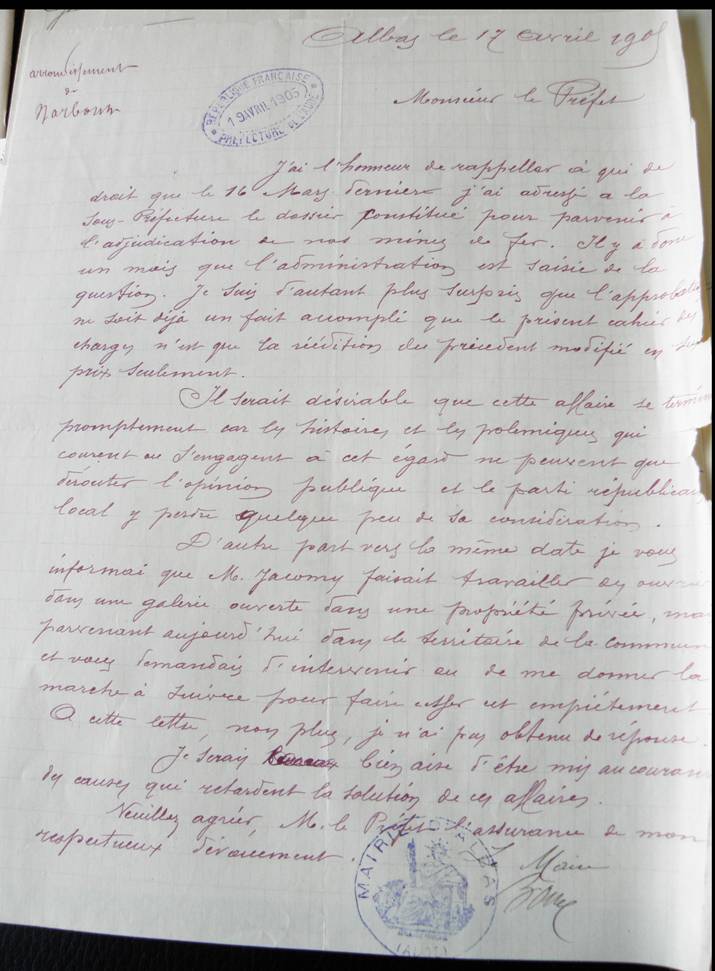 Albas le 17 Avril 1905
arrondissement
de
Narbonne
REPUBLIQUE FRANÇAISE
19 AVRIL 1905
PREFECTURE DE L'AUDE
Monsieur le Préfet
J'ai l'honneur de rappeller à qui de
droit que le 16 Mars dernier j'ai adressé a la
Sous-Préfecture le dossier constitué pour parvenir à
l'adjudication de nos mines de fer. Il y a donc
un mois que l'administration est saisie de la
question. Je suis d'autant plus surpris que l'approbation
ne soit déjà un fait accompli que le présent cahier des
charges n'est que la réédition du précédent modifié en
prix seulement.
Il serait désirable que cette affaire se termine
promptement car les histoires et les polemiques qui
courent ou s'engagent à cet égard ne peuvent que
dérouter l'opinion publique et le parti républicain
local y perdre quelque peu de sa considération.
D'autre part vers la même date je vous
informai que M. Jacomy faisait travailler des ouvriers
dans une galerie ouverte dans une propriété privée, mais
parvenant aujourd'hui dans le territoire de la commune
et vous demandais d'intervenir ou de me donner la
marche à suivre pour faire cesser cet empiétement
A cette lettre, non plus, je n'ai pas obtenu de réponse.
Je serais bien aise d'être mis au courant
des causes qui retardent la solution de ces affaires.
Veuillez agréer, M. le Préfet l'assurance de mon
respectueux dévouement.
Le Maire
MAIRIE D'ALBAS
(AUDE)